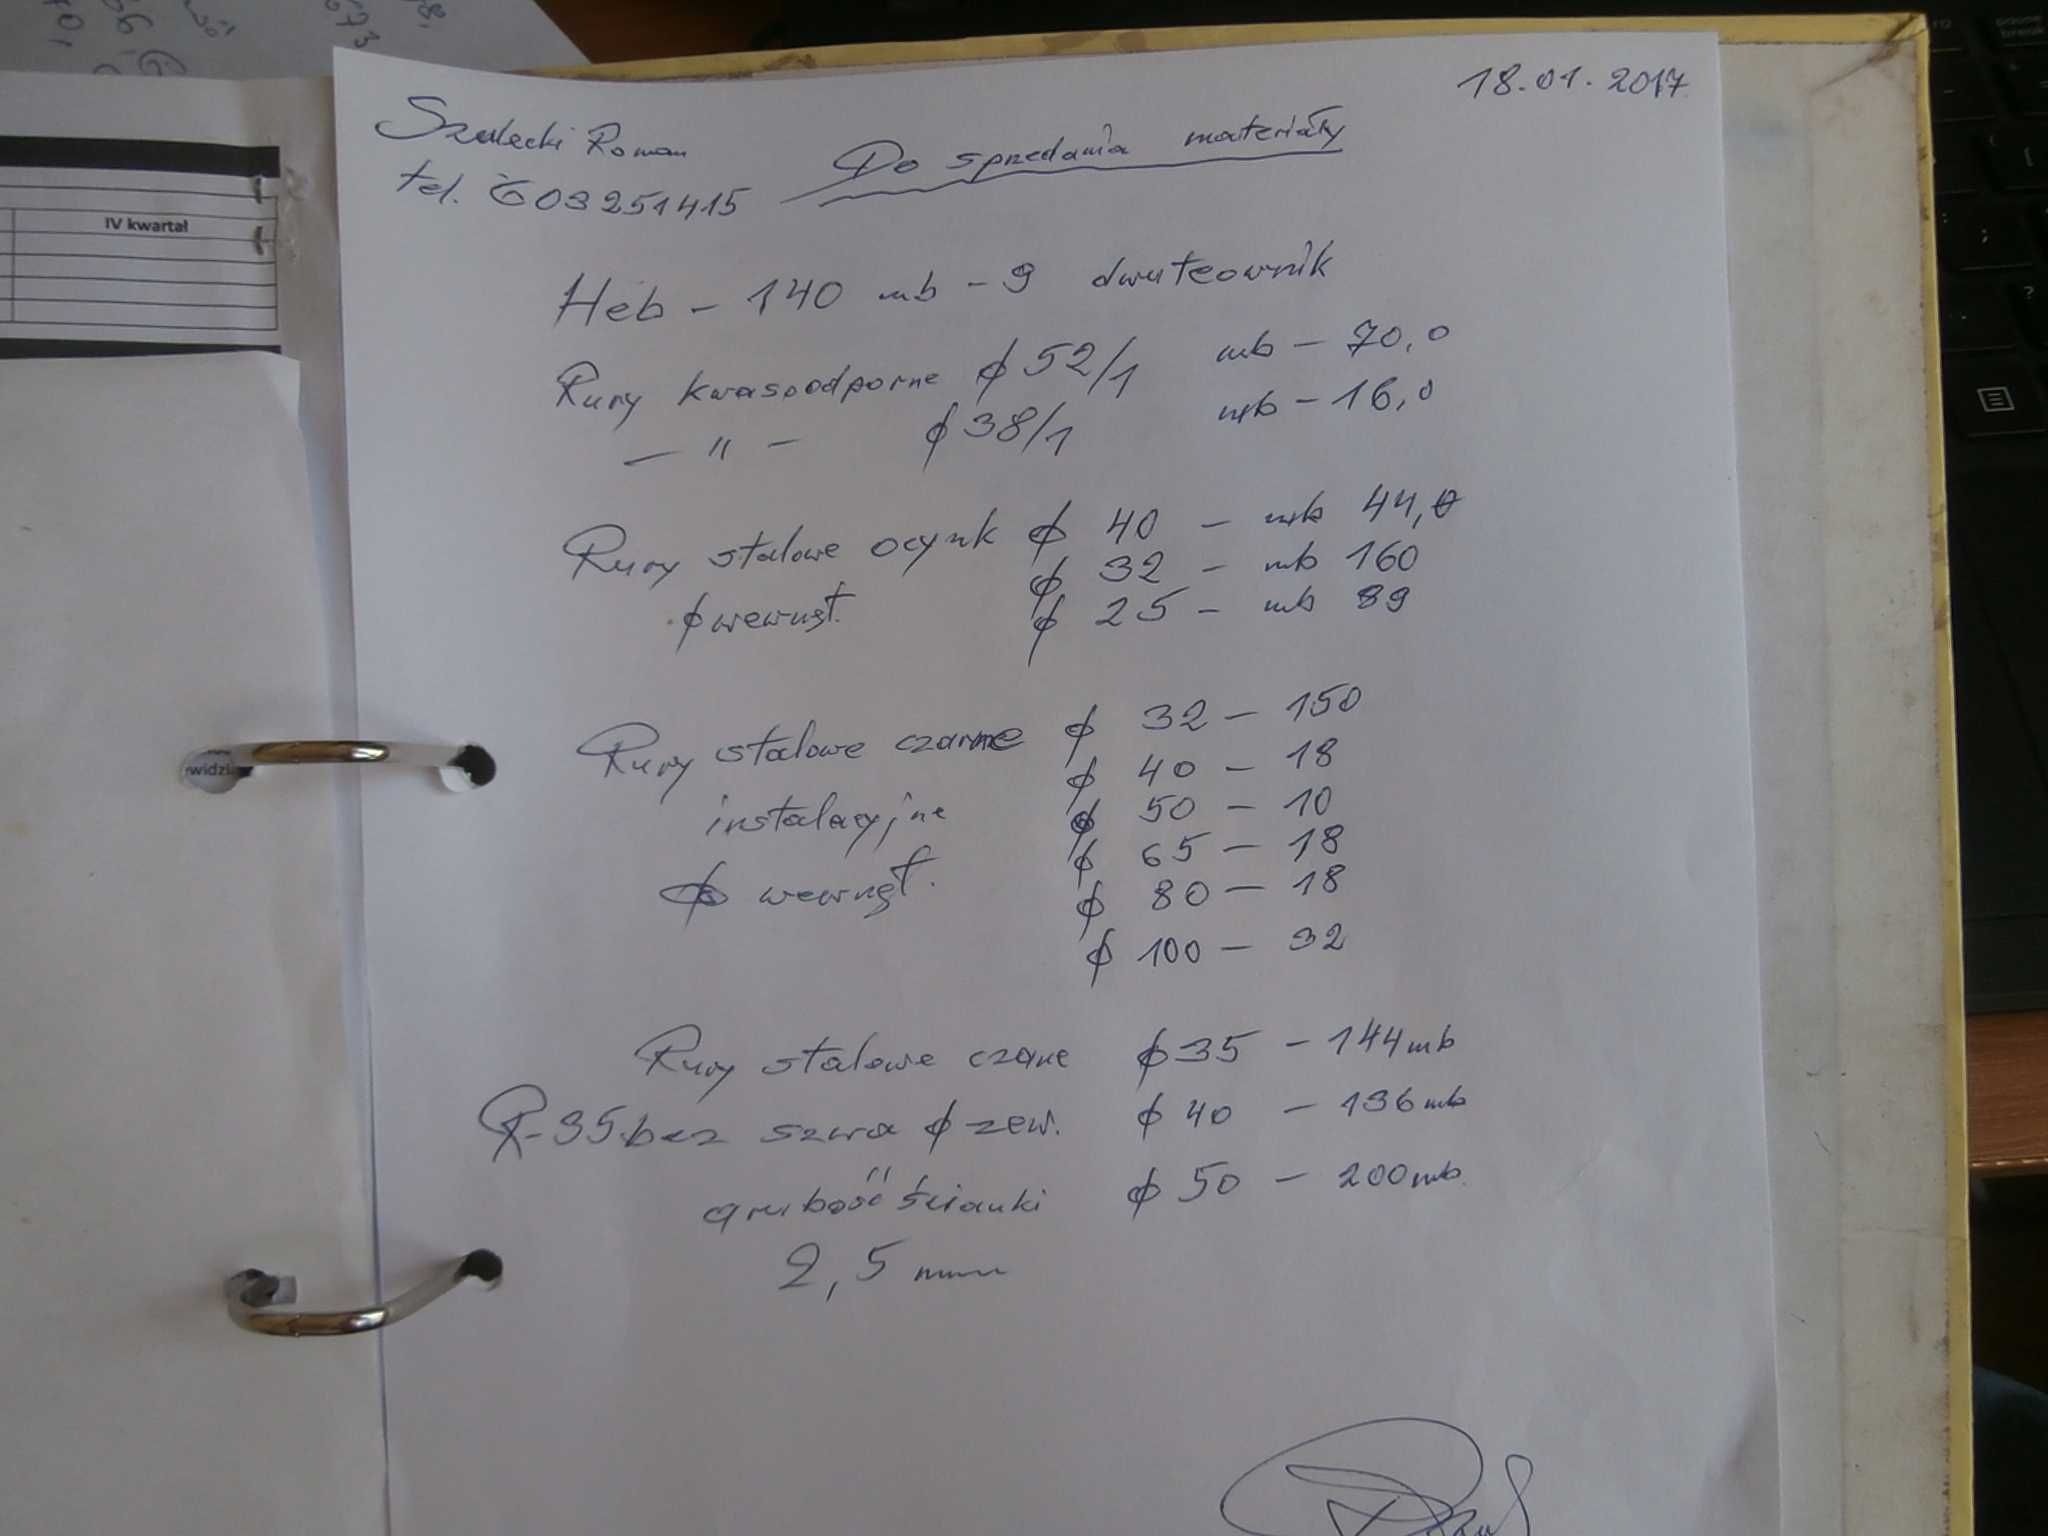 18.01.2017
Szulecki Roman
Do sprzedania materiały
tel. 603251415
IV kwartał
Heb - 140 mb - 9 dwuteownik
Rury kwasoodporne ϕ 52/1 mb - 70,0
- " - ϕ 38/1 mb - 16,0
Rury stalowe ocynk ϕ 40 - mb 44,0
ϕ 32 - mb 160
ϕ wewnęt. ϕ 25 - mb 89
Rury stalowe czarne ϕ 32 - 150
ϕ 40 - 18
instalacyjne ϕ 50 - 10
ϕ 65 - 18
ϕ wewnęt. ϕ 80 - 18
ϕ 100 - 32
Rury stalowe czarne ϕ 35 - 144 mb
R-35 bez szwa ϕ zew. ϕ 40 - 136 mb
grubość ścianki ϕ 50 - 200 mb.
2,5 mm
widzi